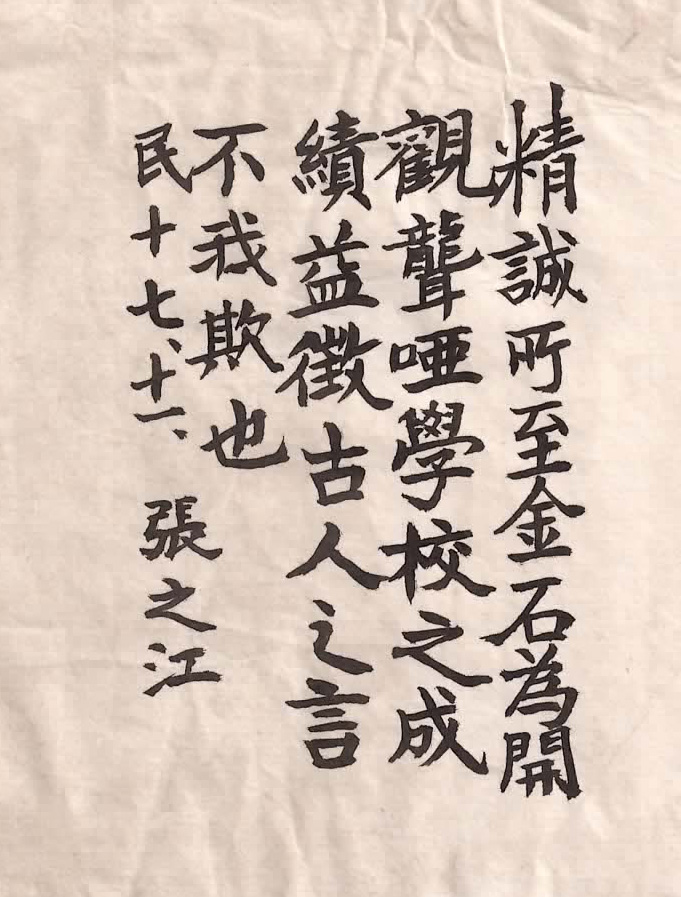 精誠所至金石為開
觀聾啞學校之成
績益徵古人之言
不我欺也
民十七、十一、
張之江